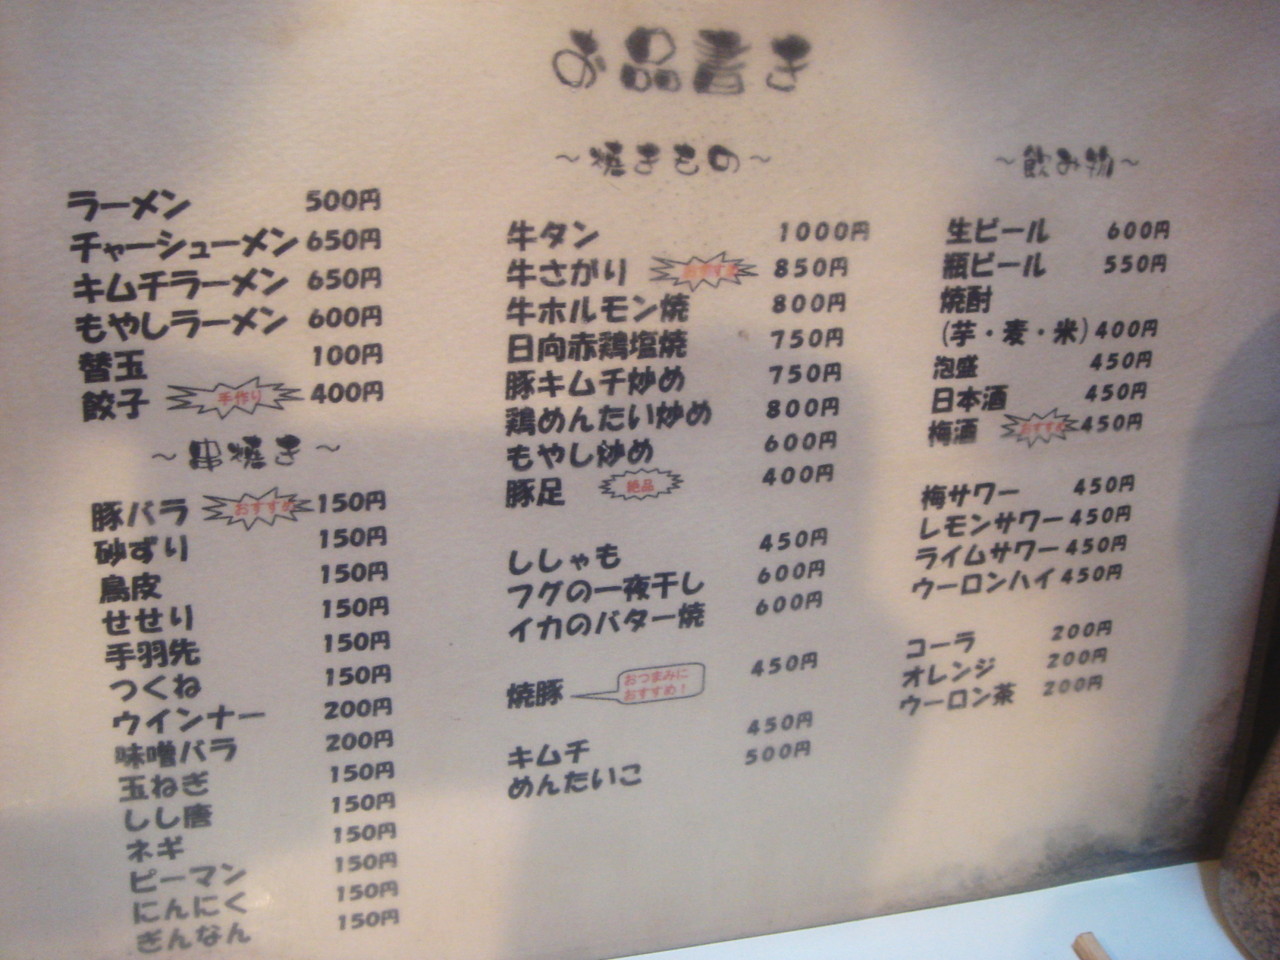 お品書き
ラーメン 500円
チャーシューメン 650円
キムチラーメン 650円
もやしラーメン 600円
替玉 100円
餃子 手作り 400円
～串焼き～
豚バラ おすすめ 150円
砂ずり 150円
鳥皮 150円
せせり 150円
手羽先 150円
つくね 150円
ウインナー 200円
味噌バラ 200円
玉ねぎ 150円
しし唐 150円
ネギ 150円
ピーマン 150円
にんにく 150円
ぎんなん 150円
～焼きもの～
牛タン 1000円
牛さがり おすすめ 850円
牛ホルモン焼 800円
日向赤鶏塩焼 750円
豚キムチ炒め 750円
鶏めんたい炒め 800円
もやし炒め 600円
豚足 絶品 400円
ししゃも 450円
フグの一夜干し 600円
イカのバター焼 600円
焼豚 おつまみに 450円
おすすめ！
キムチ 450円
めんたいこ 500円
～飲み物～
生ビール 600円
瓶ビール 550円
焼酎
(芋・麦・米) 400円
泡盛 450円
日本酒 450円
梅酒 おすすめ 450円
梅サワー 450円
レモンサワー 450円
ライムサワー 450円
ウーロンハイ 450円
コーラ 200円
オレンジ 200円
ウーロン茶 200円